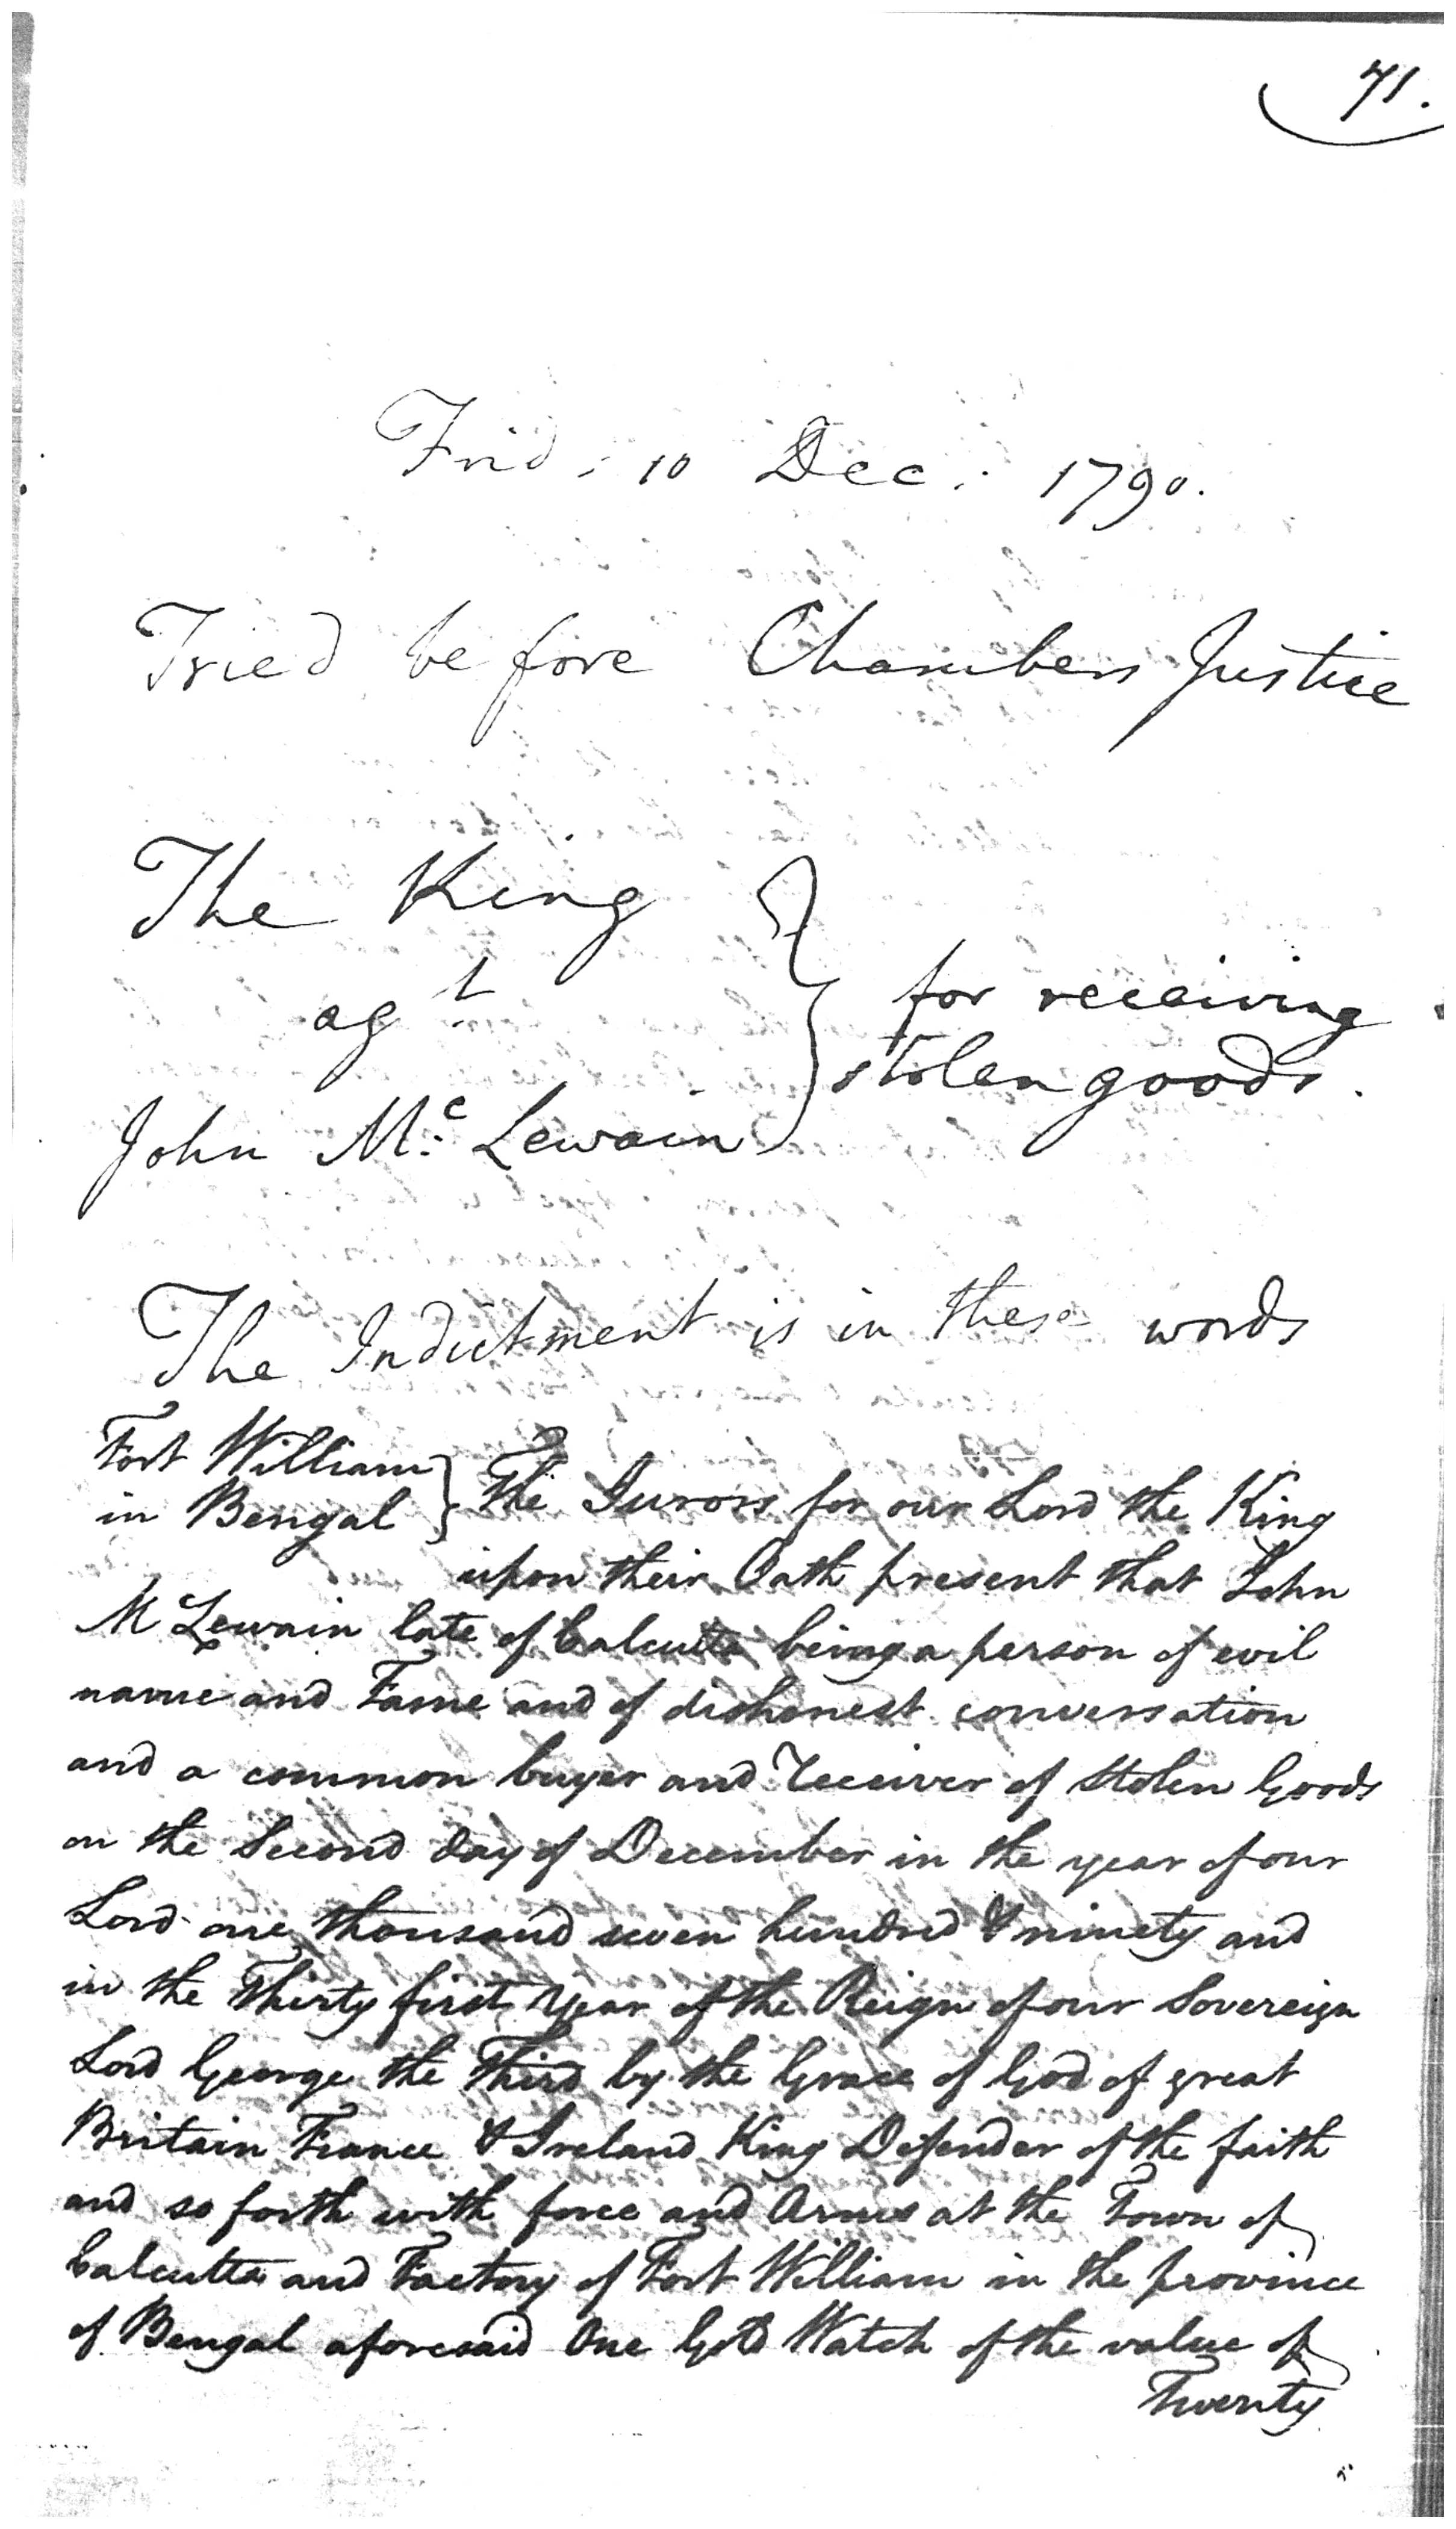 71.
Frid: 10 Dec: 1790.
Tried before Chambers Justice
The King
agt
for receiving
stolen goods.
John Mc: Lewain
The Indictment is in these words
Fort William
in Bengal
The Jurors for our Lord the King
upon their Oath present that John
Mc Lewain late of Calcutta being a person of evil
name and Fame and of dishonest conversation
and a common buyer and Receiver of Stolen Goods
on the Second day of December in the year of our
Lord one thousand seven hundred & ninety and
in the Thirty first Year of the Reign of our Sovereign
Lord George the Third by the Grace of God of great
Britain France & Ireland King Defender of the faith
and so forth with force and Arms at the Town of
Calcutta and Factory of Fort William in the province
of Bengal aforesaid One Gold Watch of the value of
Twenty